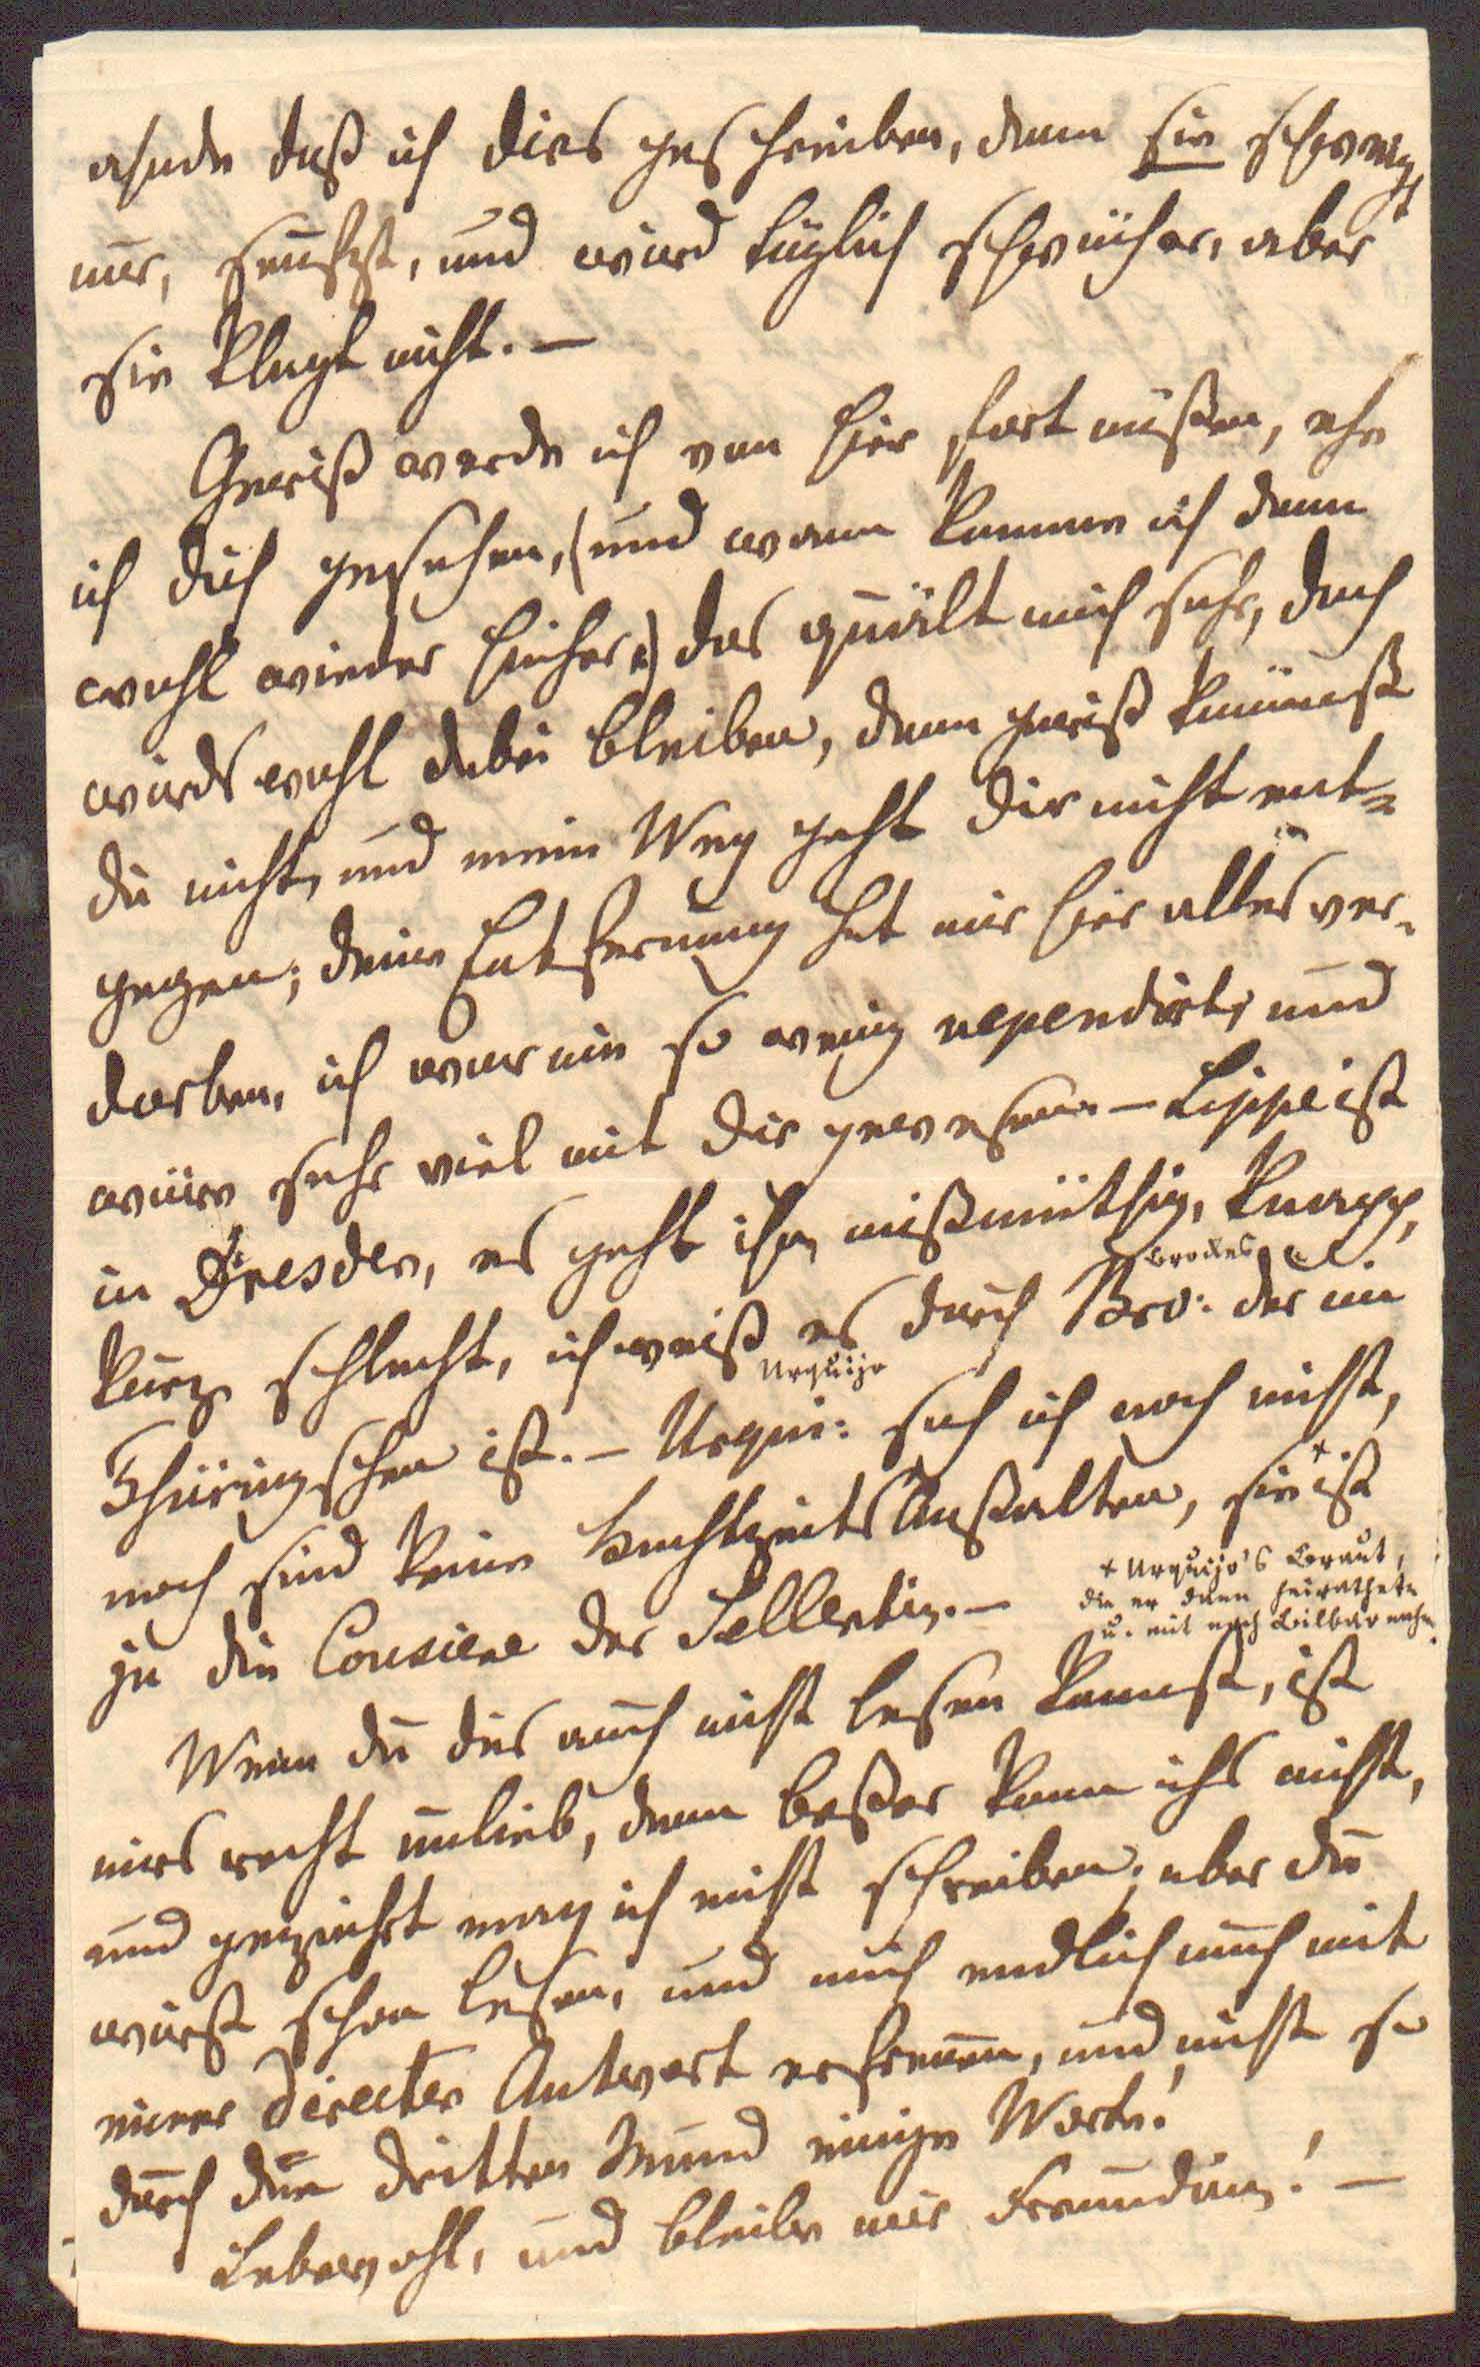 ahnde daß ich dies geschrieben, denn sie schweigt
nur, seufzt, und wird täglich schwächer, aber
sie klagt nicht. —
Gewiß werde ich von hier fort müßen, ehe
ich dich gesehen, (und wann komme ich denn
wohl wieder hieher?) das quält mich sehr, doch
wirds wohl dabei bleiben, denn gewiß kömmst
du nicht, und mein Weg geht dir nicht ent=
gegen; deine Entfernung hat mir hier alles ver-
dorben, ich war nie so wenig rependirt, und
wäre sehr viel mit dir gewesen. — Lippe ist
in Dresden, es geht ihm mißmüthig, knapp,
Brockes
kurz schlecht, ich weiß es durch Bro: der im
Urquijo
Thüringschen ist. — Urqui: sah ich noch nicht,
noch sind keine Hochzeits Anstalten, sie + ist
ja die Cousine der Sellentin. —
+ Urquijo's Braut,
die er dann heirathete
u. mit nach Bilbao nahm.
Wenn du dies auch nicht lesen kannst, ist
mirs recht unlieb, denn beßer kann ichs nicht,
und geziehrt mag ich nicht schreiben; aber du
wirst schon lesen, und mich endlich auch mit
einer directen Antwort erfreuen, und nicht so
durch den dritten Mund einige Worte!
Lebewohl, und bleibe mir Freundin! —